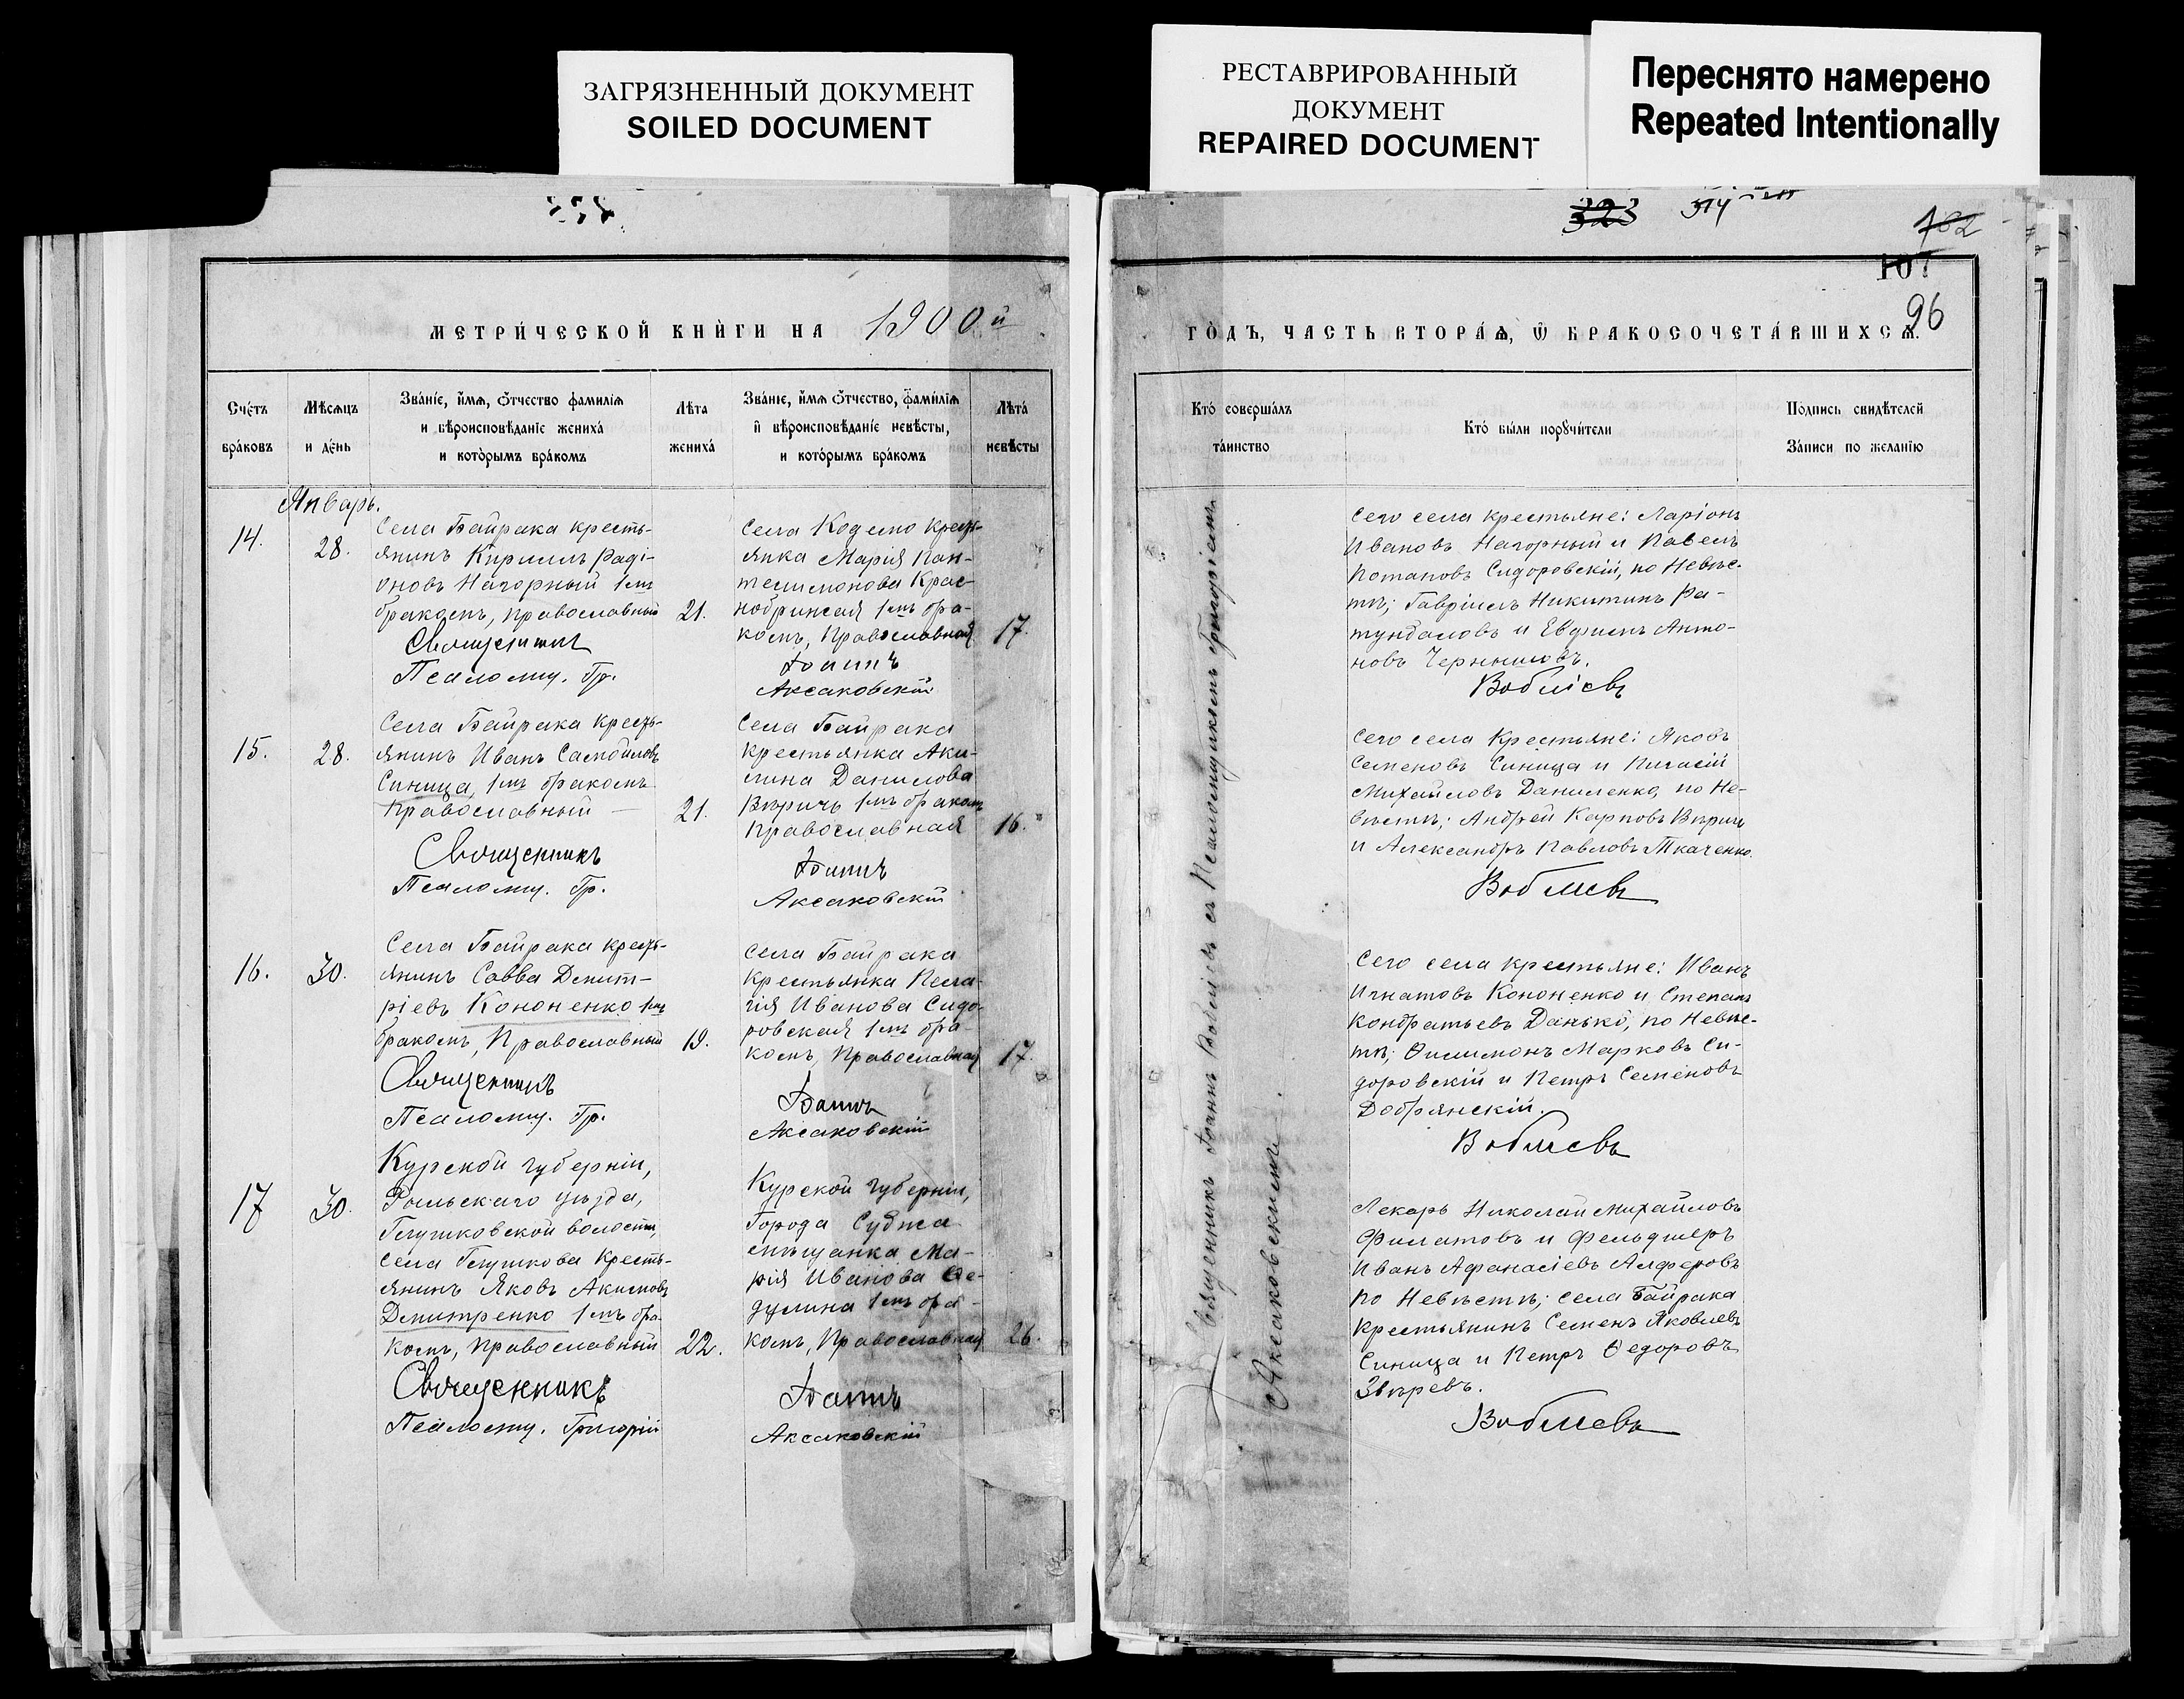 ЗАГРЯЗНЕННЫЙ ДОКУМЕНТ
SOILED DOCUMENT
РЕСТАВРИРОВАННЫЙ
ДОКУМЕНТ
REPAIRED DOCUMENT
Переснято намерено
Repeated Intentionally
323 314
182
107
96
МЕТРИ́ЧЕСКОЙ КНИ́ГИ НА 1900й
Сче́тъ
бра́ковъ
Мѣсѧцъ
и де́нь
Зва́нїе, и҆́мѧ, ѻ҆́тчество фами́лїѧ
и вѣроисповѣ́данїе жениха̀
и кото́рымъ бра́комъ
Лѣта
жениха̀
Зва́нїе, и҆́мѧ ѻ҆́тчество, фами́лїѧ
и҆ вѣроисповѣ́данїе невѣ́сты,
и кото́рымъ бра́комъ
Лѣта̀
невѣ́сты
Январь.
14.
28.
Села Байрака кресть-
янинъ Кириллъ Радi-
оновъ Нагорный 1мъ
бракомъ, православный
21.
Села Кодемо кресть-
янка Марія Пан-
телимонова Крас-
нобрижая 1мъ бра-
комъ, Православная
17.
Священникъ Іоаннъ
Псаломщ. Гр. Аксаковскій
15.
28.
Села Байрака кресть-
янинъ Иванъ Самойловъ
Синица, 1мъ бракомъ
Православный —
21.
Села Байрака
крестьянка Аки-
лина Данилова
Вѣричъ 1мъ бракомъ
православная
16.
Священникъ Іоаннъ
Псаломщ. Гр. Аксаковскій
16.
30.
Села Байрака кресть-
янинъ Савва Дмит-
ріевъ Кононенко 1мъ
бракомъ, Православный
19.
Села Байрака
Крестьянка Пела-
гія Иванова Сидо-
ровская 1мъ бра-
комъ, Православная
17.
Священникъ Іоаннъ
Псаломщ. Гр. Аксаковскій
17
30.
Курской губерніи,
Рыльскаго уѣзда,
Глушковской волости,
села Глушкова Кресть-
янинъ Яковъ Акимовъ
Дмитренко 1мъ бра-
комъ, православный
22.
Курской губерніи,
Города Суджа
мѣщанка Ма-
рія Иванова Ѳе-
дулина 1мъ бра-
комъ, Православная
26.
Священникъ Іоаннъ
Псаломщ. Григорій Аксаковскій
ГО́ДЪ, ЧАСТЬ ВТОРА́Ѧ, Ѡ҆ БРАКОСОЧЕТА́ВШИХСѦ.
Кто̀ соверша́лъ
та́инство
Кто̀ бы́ли порꙋчи́тели
По́дпись свидѣ́телей
За́писи по жела́нїю
Священникъ Іоаннъ Воблiевъ съ Псаломщикомъ Григоріемъ
Аксаковскимъ.
Сего села крестьяне: Ларіонъ
Ивановъ Нагорный и Павелъ
Потаповъ Сидоровскій, по Невѣс-
тѣ; Гавріилъ Никитинъ Ра-
тундаловъ и Ефимъ Анто-
новъ Чернышовъ.
Воблiевъ
Сего села Крестьяне: Яковъ
Семеновъ Синица и Пигасій
Михайловъ Даниленко, по Не-
вѣстѣ; Андрей Карповъ Вѣричъ
и Александръ Павловъ Ткаченко.
Воблiевъ
Сего села крестьяне: Иванъ
Игнатовъ Кононенко и Степанъ
Кондратьевъ Данько, по Невѣс-
тѣ; Филимонъ Марковъ Си-
доровскій и Петръ Семеновъ
Добрянскій.
Воблiевъ
Лекарь Николай Михайловъ
Филатовъ и Фельдшеръ
Иванъ Афанасіевъ Алферовъ
по Невѣстѣ; села Байрака
крестьянинъ Семенъ Яковлевъ
Синица и Петръ Ѳедоровъ
Звѣревъ.
Воблiевъ